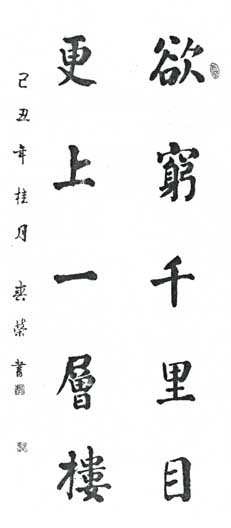 欲窮千里目
更上一層樓
己丑年桂月 奕榮書